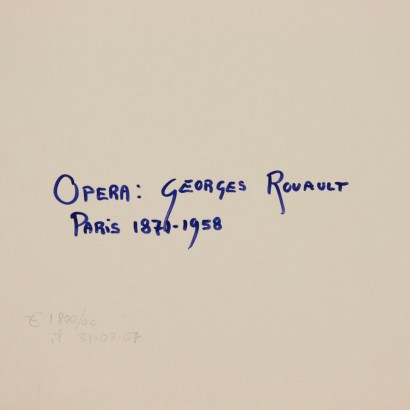 OPERA: GEORGES ROUAULT
PARIS 1871-1958
€ 1800/00
31-03-07